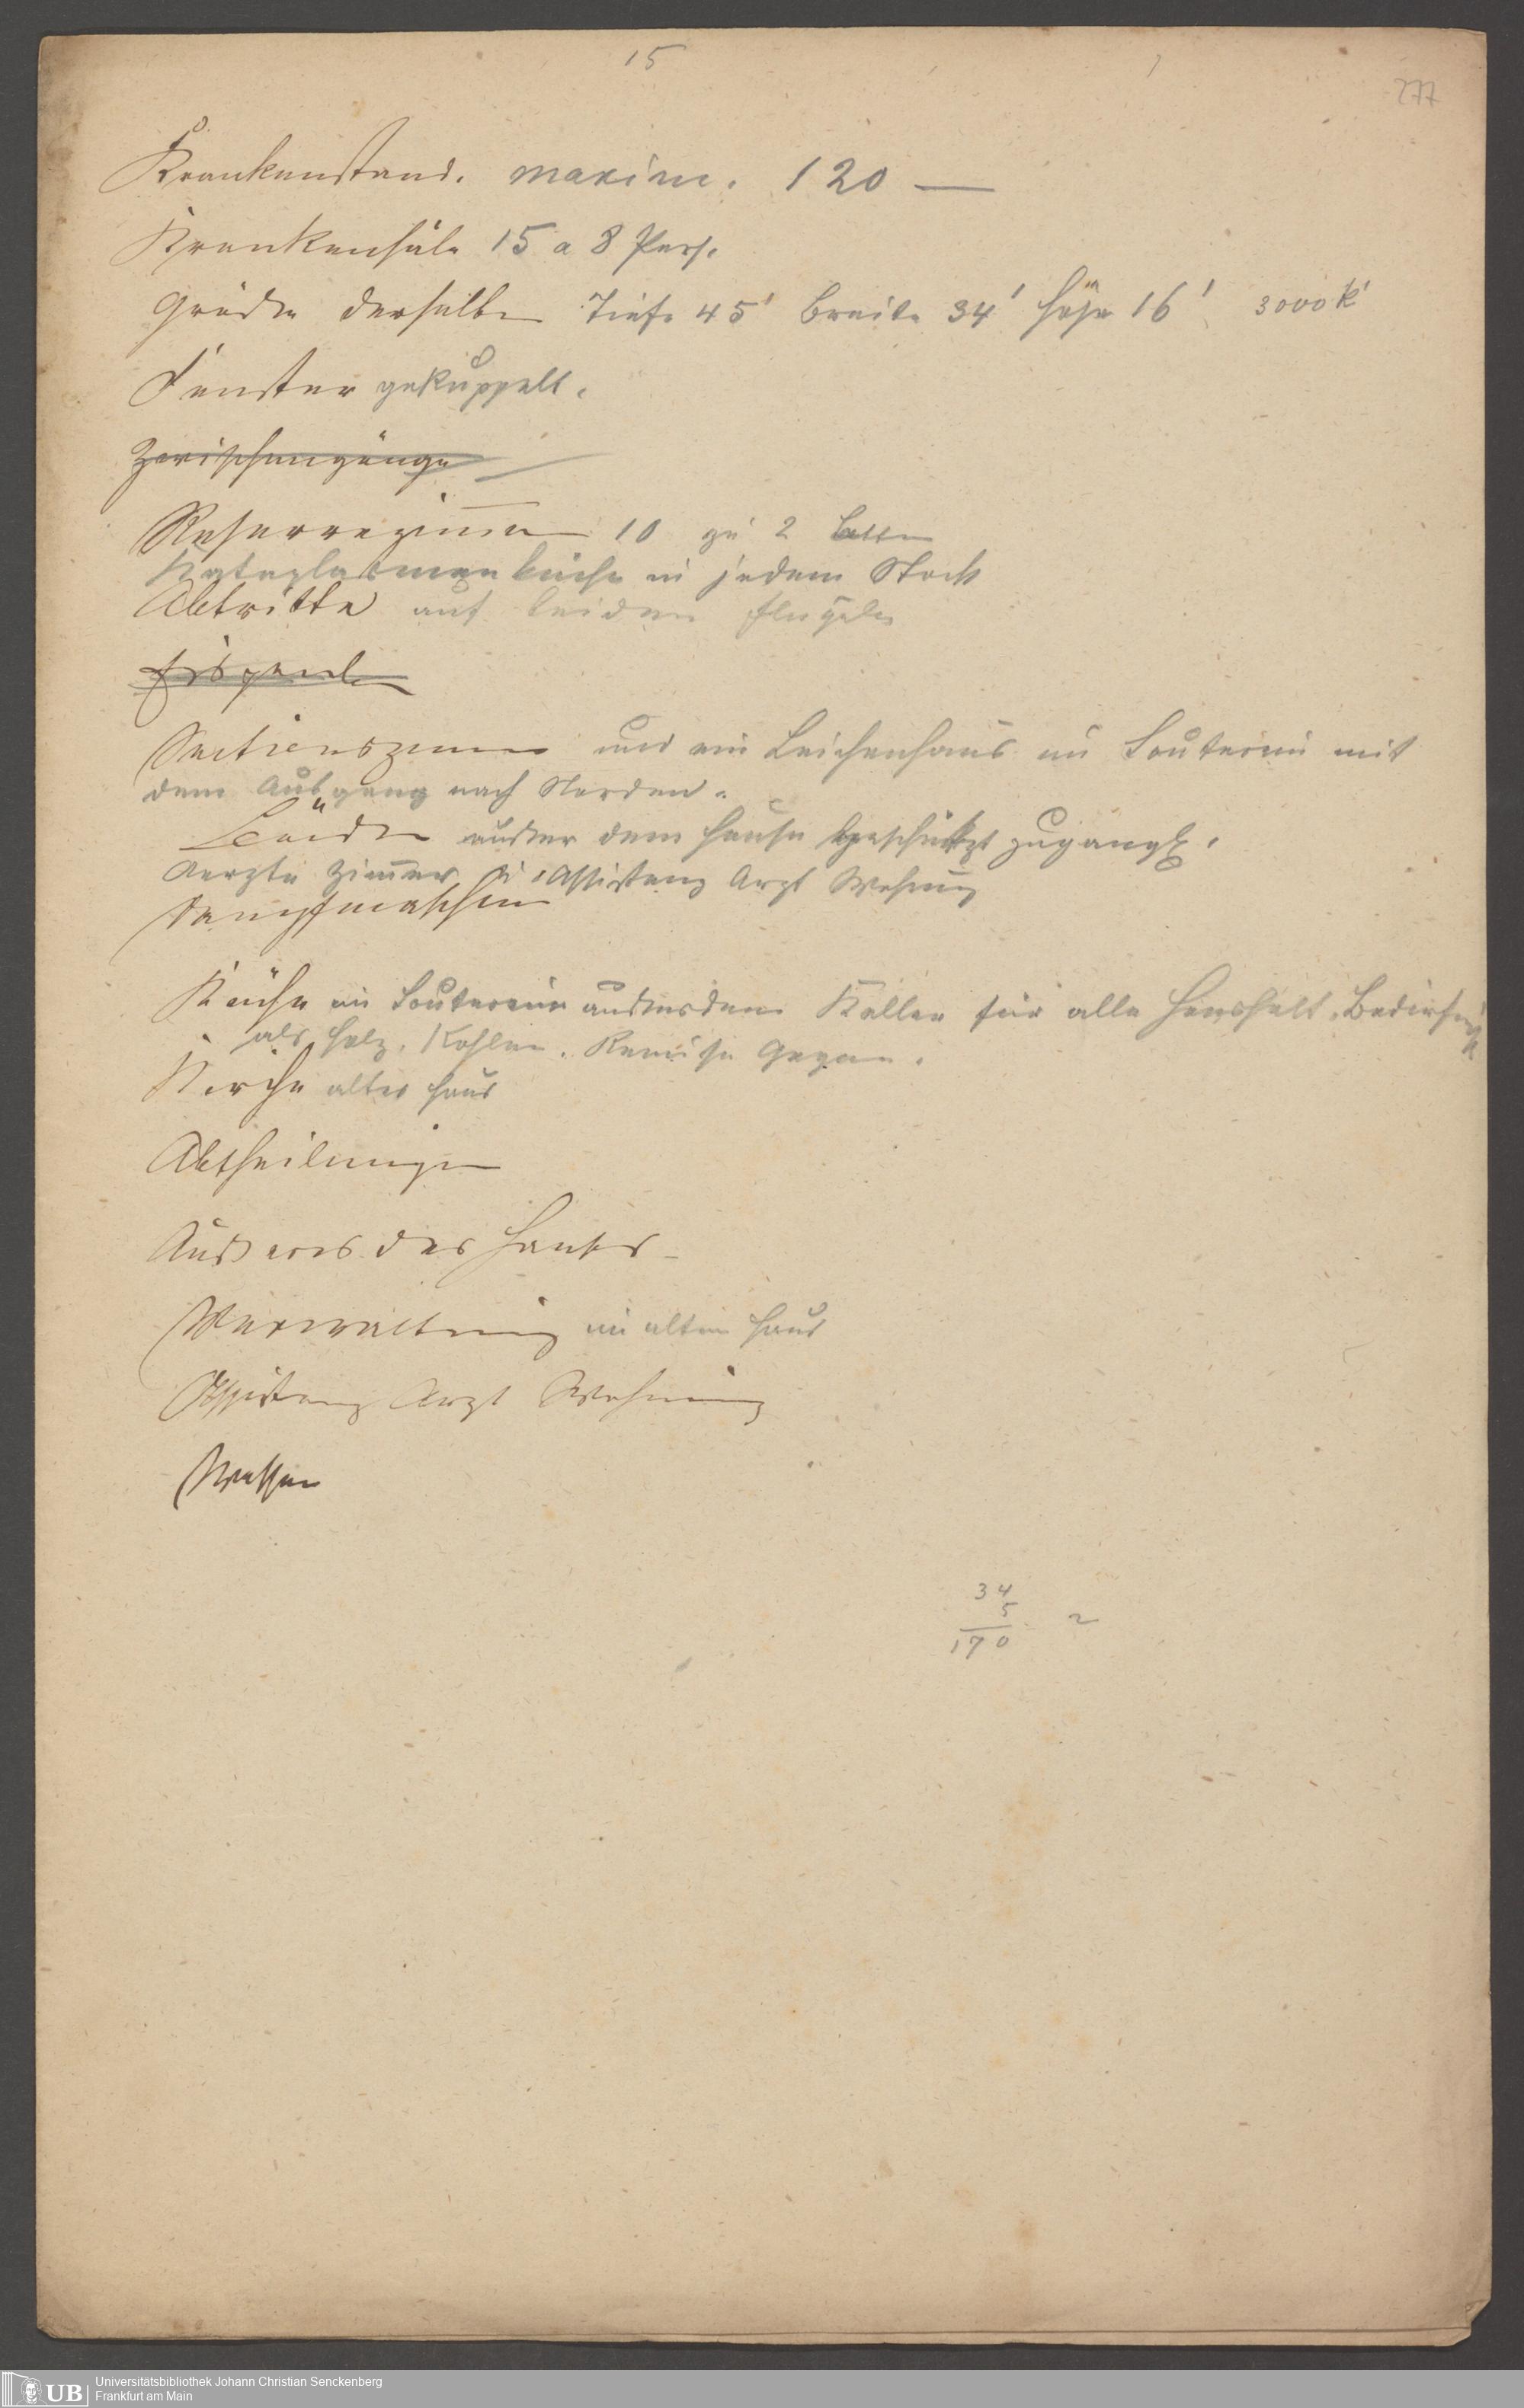 15
277
Krankenstand. maxim. 120 —
Krankensäle 15 a 8 Pers.
Größe derselben Tiefe 45' Breite 34' Höhe 16' 3000 k'
Fenster gekuppelt.
Zwischengänge
Reservezimmer 10 zu 2 Betten
Kataplasmenküche in jedem Stock
Abtritte auf beiden Flügeln
Sectionszimmer und ein Leichenhaus im Souterrin mit
dem Ausgang nach Norden.
außer dem Hause geschützt zugängl.
Aerzte Zimmer Assistenz Arzt Wohnung
Dampfmaschine
Küche im Souterrain außerdem Keller für alle Haushalt. Bedürfniße
als Holz, Kohlen. Remise Gegen.
Kirche altes Haus
Abtheilungen
Äußeres des Hauses
Verwaltung im alten Haus
Assistenz Arzt Wohnung
Wasser
34
5
170
UB
Universitätsbibliothek Johann Christian Senckenberg
Frankfurt am Main